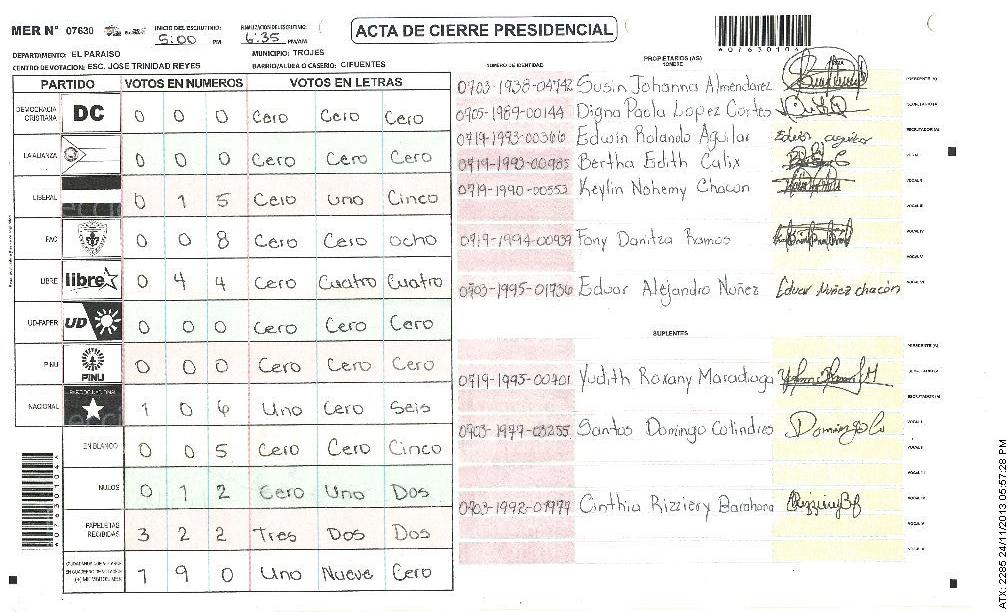 MER N° 07630
INICIO DEL ESCRUTINIO: 5:00 PM
FINALIZACION DEL ESCRUTINIO: 6:35 PM/AM
ACTA DE CIERRE PRESIDENCIAL
DEPARTAMENTO: EL PARAISO
MUNICIPIO: TROJES
CENTRO DE VOTACION: ESC. JOSE TRINIDAD REYES
BARRIO/ALDEA O CASERIO: CIFUENTES
PARTIDO VOTOS EN NUMEROS VOTOS EN LETRAS
DEMOCRACIA CRISTIANA DC 0 0 0 Cero Cero Cero
LA ALIANZA 0 0 0 Cero Cero Cero
LIBERAL 0 1 5 Cero Uno Cinco
FAC 0 0 8 Cero Cero ocho
LIBRE libre 0 4 4 Cero Cuatro Cuatro
UD-FAPER UD 0 0 0 Cero Cero Cero
PINU PINU 0 0 0 Cero Cero Cero
NACIONAL 1 0 6 Uno Cero Seis
EN BLANCO 0 0 5 Cero Cero Cinco
NULOS 0 1 2 Cero Uno Dos
PAPELETAS RECIBIDAS 3 2 2 Tres Dos Dos
1 9 0 Uno Nueve Cero
4076301044
NUMERO DE IDENTIDAD
PROPIETARIOS (AS)
NOMBRE
0703-1938-04742 Susin Johanna Almendarez PRESIDENTE (A)
0905-1989-00144 Digna Paola Lopez Cortes SECRETARIO (A)
0719-1993-00366 Edwin Rolando Aguilar Edwin aguilar ESCRUTADOR (A)
0719-1993-00985 Bertha Edith Calix VOCAL I
0719-1990-00553 Keylin Nohemy Chacon VOCAL II
VOCAL III
0719-1994-00939 Fany Danitza Ramos VOCAL IV
VOCAL V
0703-1995-01736 Edwar Alejandro Nuñez Edwar Nuñez chacón VOCAL VI
SUPLENTES
PRESIDENTE (A)
0719-1993-00701 Yudith Roxany Maradiaga SECRETARIO (A)
ESCRUTADOR (A)
0703-1977-03255 Santos Domingo Colindres VOCAL I
0703-1992-01979 Cinthia Rizziery Barahona
VOCAL V
ATX: 2285 24/11/2013 05:57:28 PM